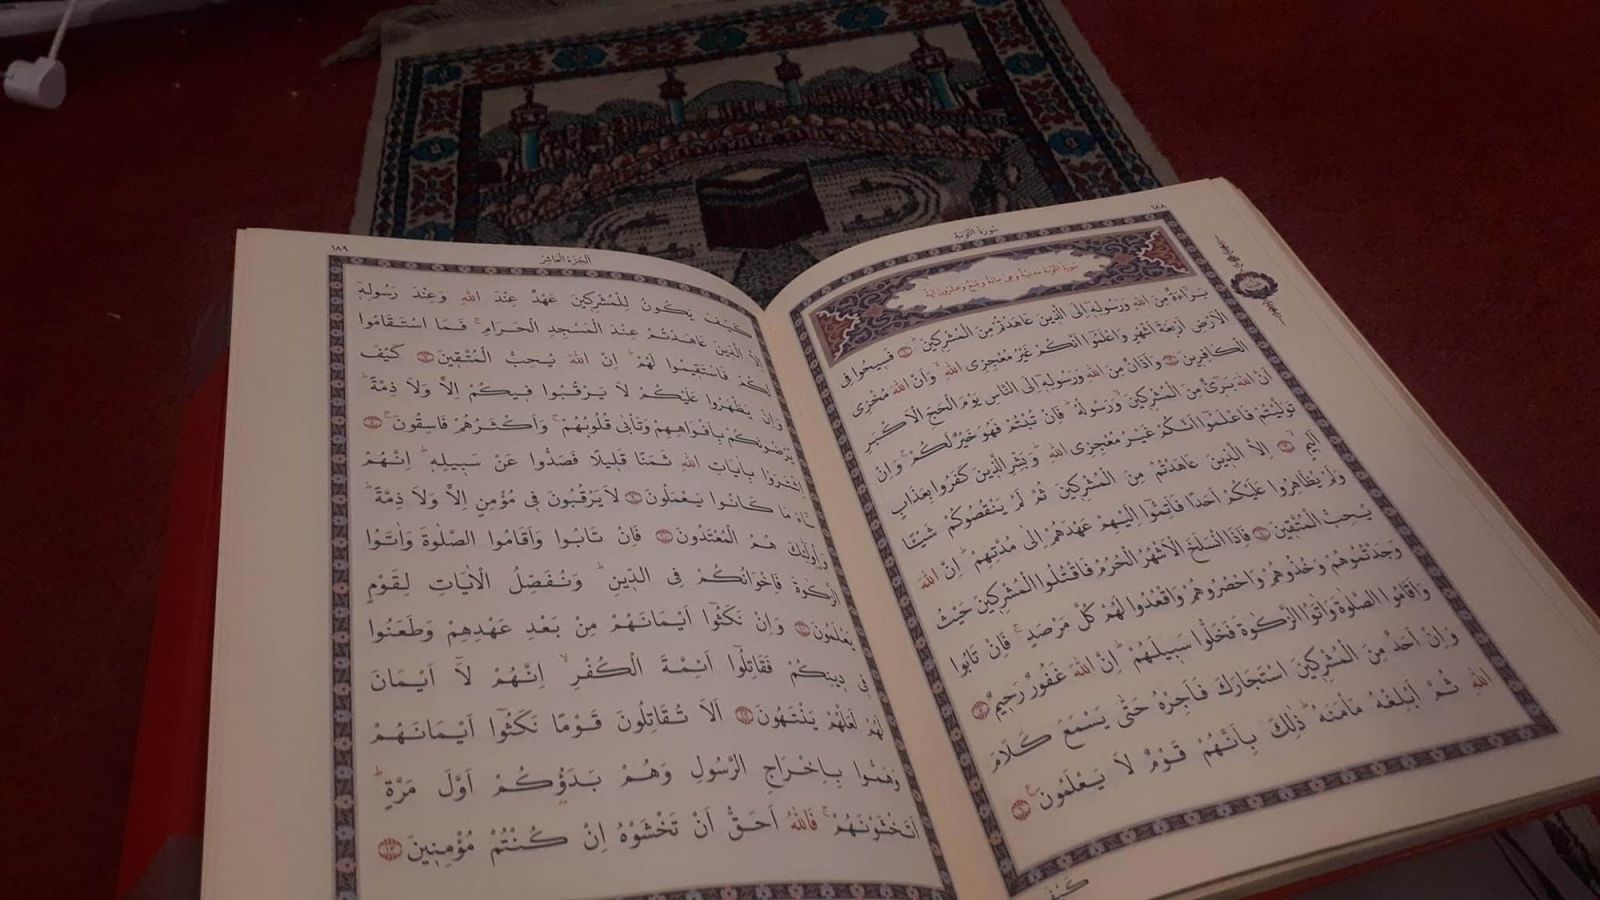 ١٨٨
سورة التوبة
سورة التوبة مدنية وهى مائة وتسع وعشرون آية
بَرَٓاءَةٌ مِنَ اللّٰهِ وَرَسُولِه۪ٓ اِلَى الَّذ۪ينَ عَاهَدْتُمْ مِنَ الْمُشْرِك۪ينَ ۜ ﴿١﴾ فَس۪يحُوا فِى
الْاَرْضِ اَرْبَعَةَ اَشْهُرٍ وَاعْلَمُٓوا اَنَّكُمْ غَيْرُ مُعْجِزِى اللّٰهِ ۙ وَاَنَّ اللّٰهَ مُخْزِى
الْكَافِر۪ينَ ﴿٢﴾ وَاَذَانٌ مِنَ اللّٰهِ وَرَسُولِه۪ٓ اِلَى النَّاسِ يَوْمَ الْحَجِّ الْاَكْبَرِ
اَنَّ اللّٰهَ بَر۪ٓىءٌ مِنَ الْمُشْرِك۪ينَ وَرَسُولُهُ ۜ فَاِنْ تُبْتُمْ فَهُوَ خَيْرٌ لَكُمْ ۚ وَاِنْ
تَوَلَّيْتُمْ فَاعْلَمُٓوا اَنَّكُمْ غَيْرُ مُعْجِزِى اللّٰهِ ۜ وَبَشِّرِ الَّذ۪ينَ كَفَرُوا بِعَذَابٍ
اَل۪يمٍ ۙ ﴿٣﴾ اِلَّا الَّذ۪ينَ عَاهَدْتُمْ مِنَ الْمُشْرِك۪ينَ ثُمَّ لَمْ يَنْقُصُوكُمْ شَيْـًٔا
وَلَمْ يُظَاهِرُوا عَلَيْكُمْ اَحَدًا فَاَتِمُّٓوا اِلَيْهِمْ عَهْدَهُمْ اِلٰى مُدَّتِهِمْ ۜ اِنَّ اللّٰهَ
يُحِبُّ الْمُتَّق۪ينَ ﴿٤﴾ فَاِذَا انْسَلَخَ الْاَشْهُرُ الْحُرُمُ فَاقْتُلُوا الْمُشْرِك۪ينَ حَيْثُ
وَجَدْتُمُوهُمْ وَخُذُوهُمْ وَاحْصُرُوهُمْ وَاقْعُدُوا لَهُمْ كُلَّ مَرْصَدٍ ۚ فَاِنْ تَابُوا
وَاَقَامُوا الصَّلٰوةَ وَاٰتَوُا الزَّكٰوةَ فَخَلُّوا سَب۪يلَهُمْ ۜ اِنَّ اللّٰهَ غَفُورٌ رَح۪يمٌ ﴿٥﴾
وَاِنْ اَحَدٌ مِنَ الْمُشْرِك۪ينَ اسْتَجَارَكَ فَاَجِرْهُ حَتّٰى يَسْمَعَ كَلَامَ
اللّٰهِ ثُمَّ اَبْلِغْهُ مَأْمَنَهُ ۜ ذٰلِكَ بِاَنَّهُمْ قَوْمٌ لَا يَعْلَمُونَ ۟ ﴿٦﴾
كَيْفَ
١٨٩
الجزء العاشر
كَيْفَ يَكُونُ لِلْمُشْرِك۪ينَ عَهْدٌ عِنْدَ اللّٰهِ وَعِنْدَ رَسُولِه۪ٓ
اِلَّا الَّذ۪ينَ عَاهَدْتُمْ عِنْدَ الْمَسْجِدِ الْحَرَامِ ۚ فَمَا اسْتَقَامُوا
لَكُمْ فَاسْتَق۪يمُوا لَهُمْ ۜ اِنَّ اللّٰهَ يُحِبُّ الْمُتَّق۪ينَ ﴿٧﴾ كَيْفَ
وَاِنْ يَظْهَرُوا عَلَيْكُمْ لَا يَرْقُبُوا ف۪يكُمْ اِلًّا وَلَا ذِمَّةً ۜ
يُرْضُونَكُمْ بِاَفْوَاهِهِمْ وَتَأْبٰى قُلُوبُهُمْ ۚ وَاَكْثَرُهُمْ فَاسِقُونَ ۚ ﴿٨﴾
اِشْتَرَوْا بِاٰيَاتِ اللّٰهِ ثَمَنًا قَل۪يلًا فَصَدُّوا عَنْ سَب۪يلِه۪ ۜ اِنَّهُمْ
سَٓاءَ مَا كَانُوا يَعْمَلُونَ ﴿٩﴾ لَا يَرْقُبُونَ ف۪ى مُؤْمِنٍ اِلًّا وَلَا ذِمَّةً ۜ
وَاُو۬لٰٓئِكَ هُمُ الْمُعْتَدُونَ ﴿١٠﴾ فَاِنْ تَابُوا وَاَقَامُوا الصَّلٰوةَ وَاٰتَوُا
الزَّكٰوةَ فَاِخْوَانُكُمْ فِى الدّ۪ينِ ۜ وَنُفَصِّلُ الْاٰيَاتِ لِقَوْمٍ
يَعْلَمُونَ ﴿١١﴾ وَاِنْ نَكَثُٓوا اَيْمَانَهُمْ مِنْ بَعْدِ عَهْدِهِمْ وَطَعَنُوا
ف۪ى د۪ينِكُمْ فَقَاتِلُٓوا اَئِمَّةَ الْكُفْرِ ۙ اِنَّهُمْ لَٓا اَيْمَانَ
لَهُمْ لَعَلَّهُمْ يَنْتَهُونَ ﴿١٢﴾ اَلَا تُقَاتِلُونَ قَوْمًا نَكَثُٓوا اَيْمَانَهُمْ
وَهَمُّوا بِاِخْرَاجِ الرَّسُولِ وَهُمْ بَدَؤُ۫كُمْ اَوَّلَ مَرَّةٍ ۜ
اَتَخْشَوْنَهُمْ ۚ فَاللّٰهُ اَحَقُّ اَنْ تَخْشَوْهُ اِنْ كُنْتُمْ مُؤْمِن۪ينَ ﴿١٣﴾